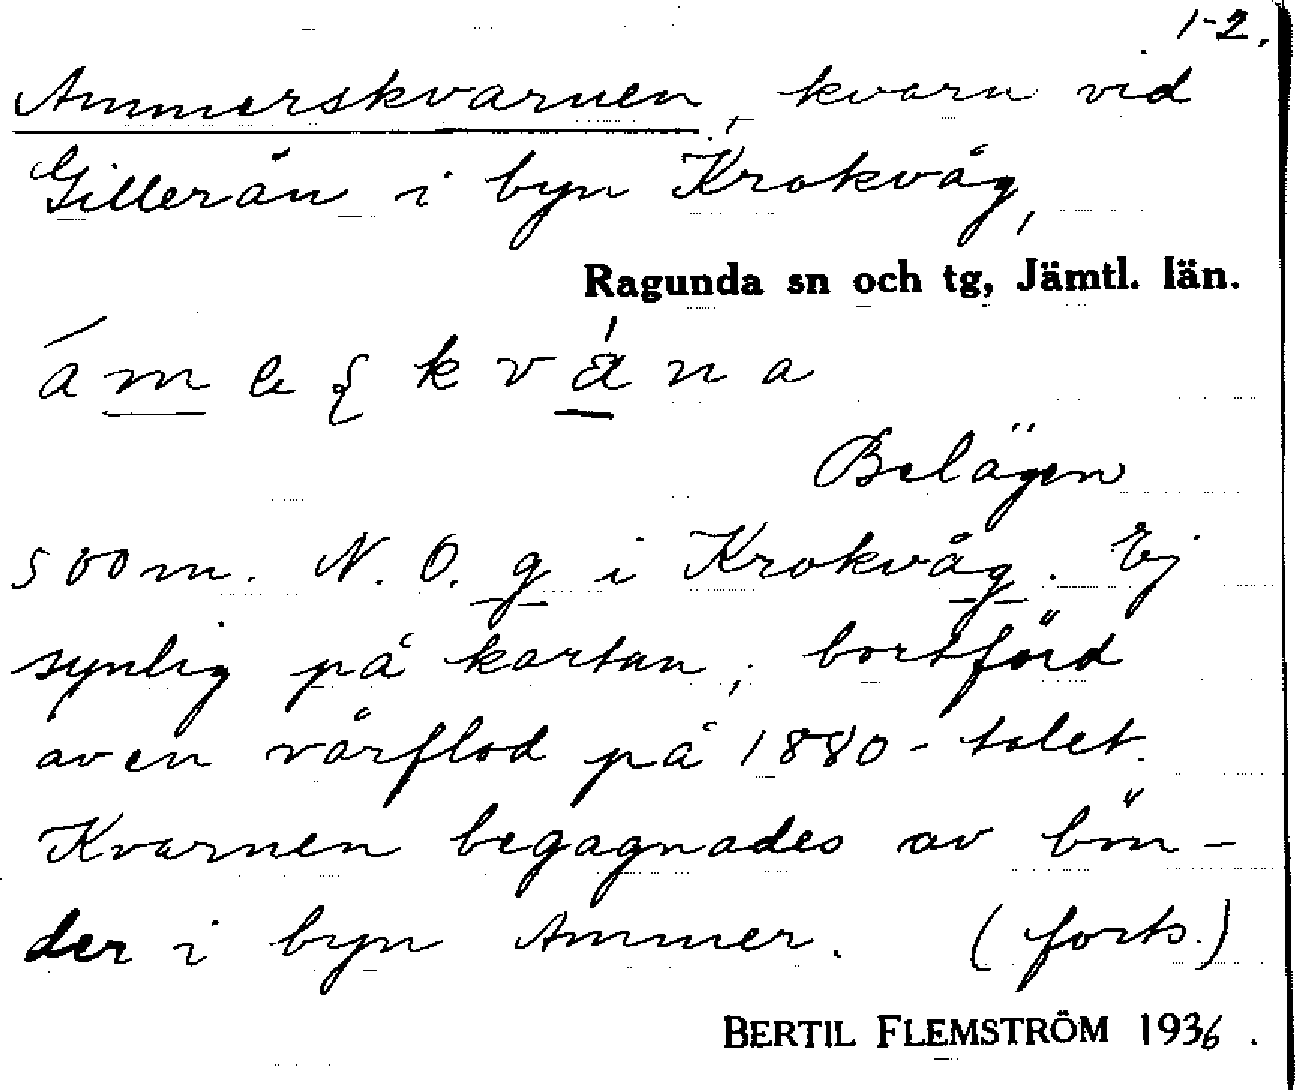 1-2.
Ammerskvarnen, kvarn vid
Gillerån i byn Krokvåg,
Ragunda sn och tg, Jämtl. län.
Belägen
500 m. N. O. g i Krokvåg. Ej
synlig på kartan, bortförd
av en vårflod på 1880-talet.
Kvarnen begagnades av bön-
der i byn Ammer. (forts.)
BERTIL FLEMSTRÖM 1936.